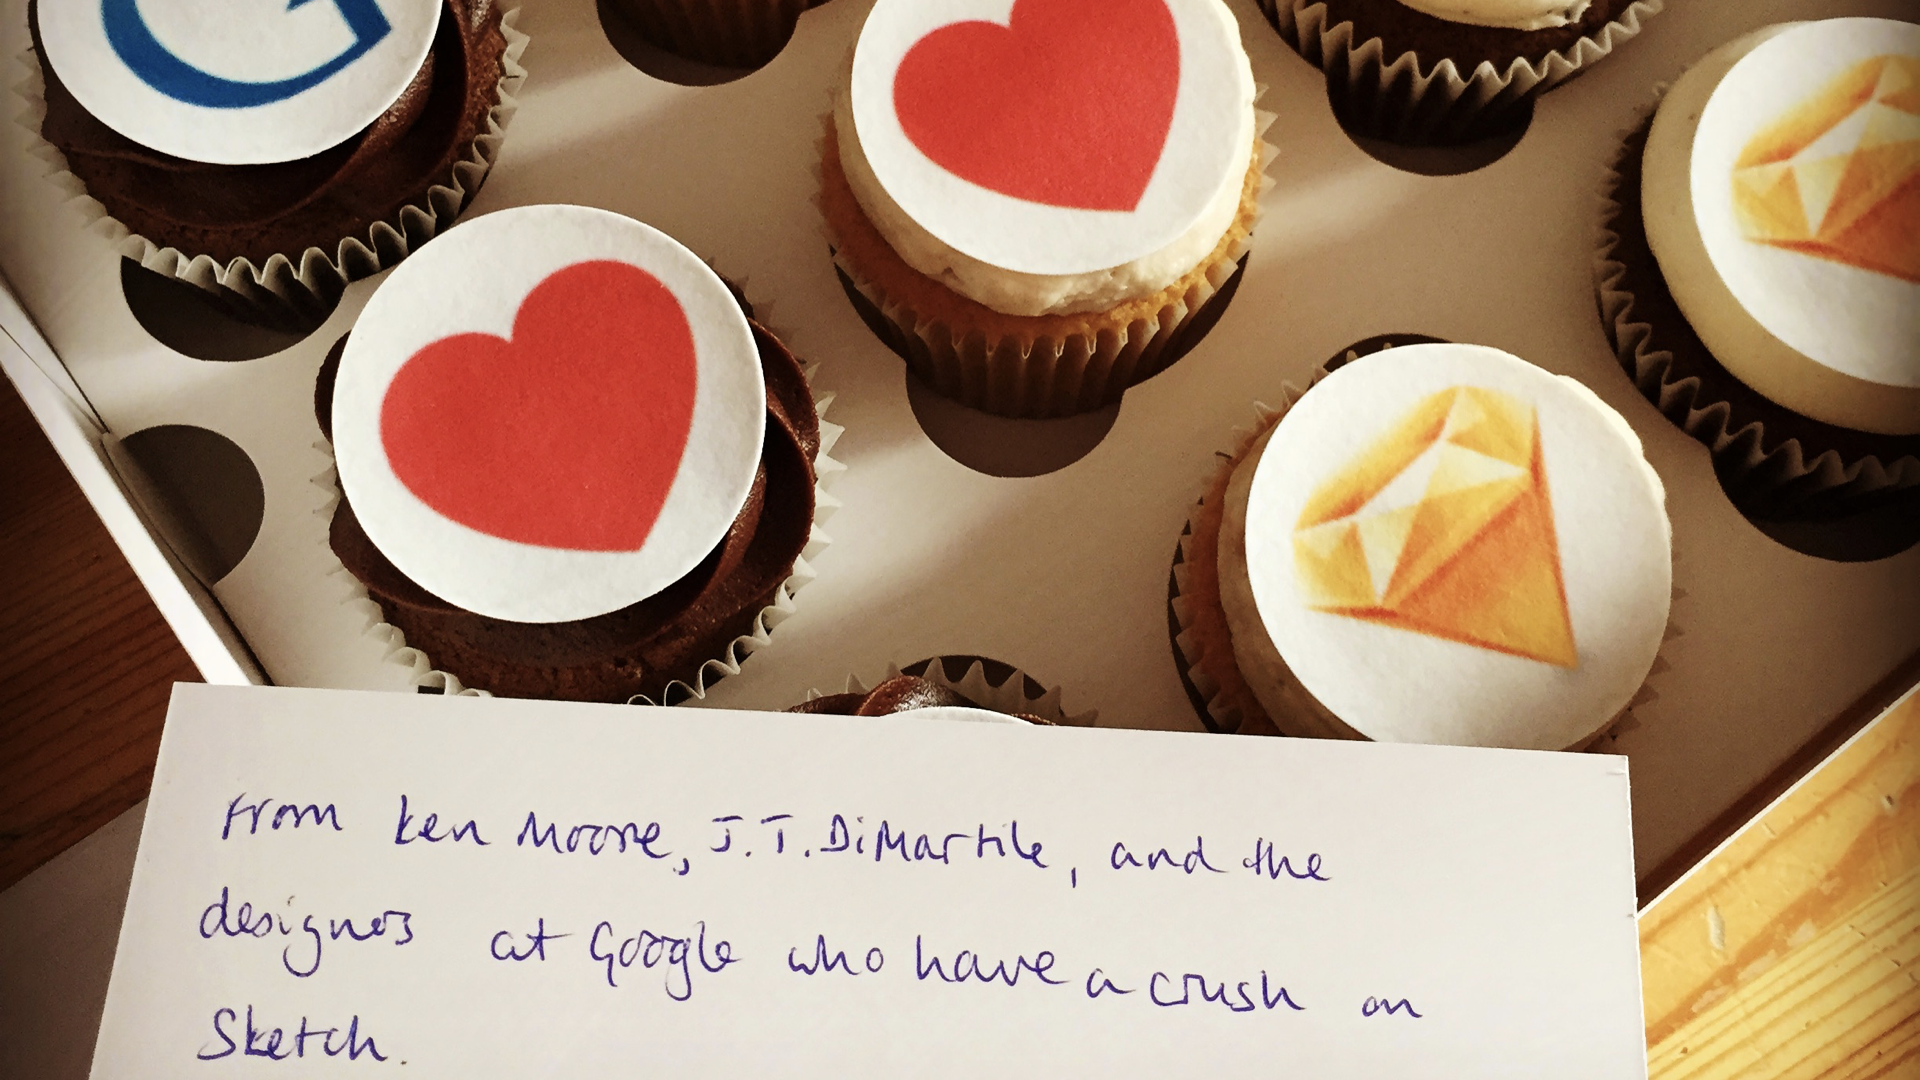 G
From Ken Moore, J.T. DiMartile, and the
designers at Google who have a crush on
Sketch.